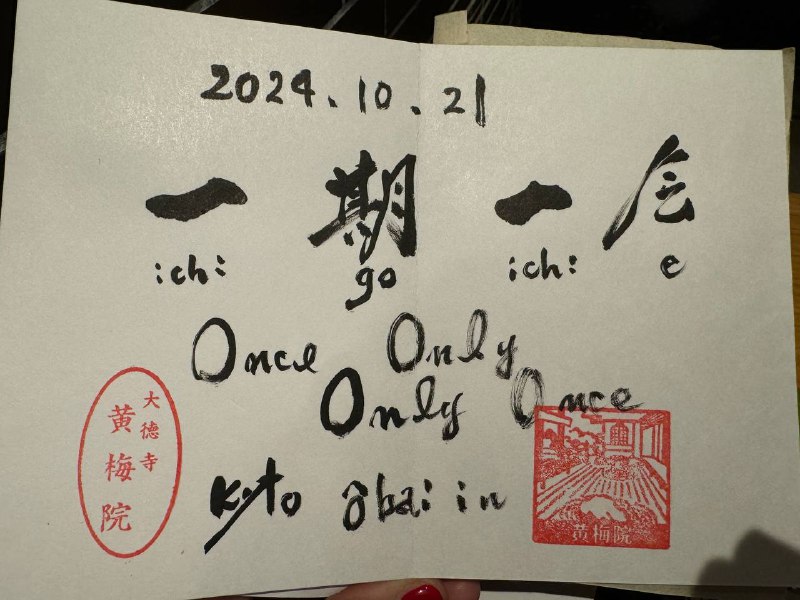 2024.10.21
一期一会
ichi go ichi e
Once Only
Only Once
Kyoto Ōbai in
大徳寺
黄梅院
黄梅院